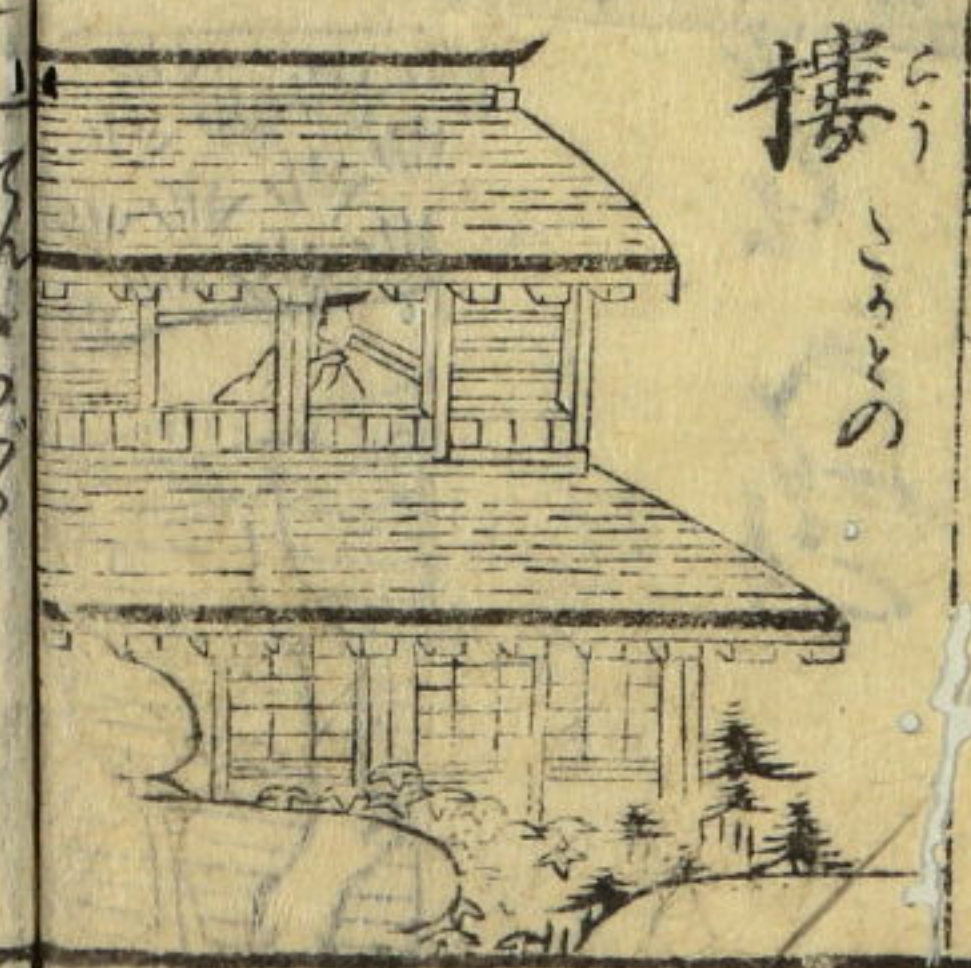 樓
ろう
たかとの